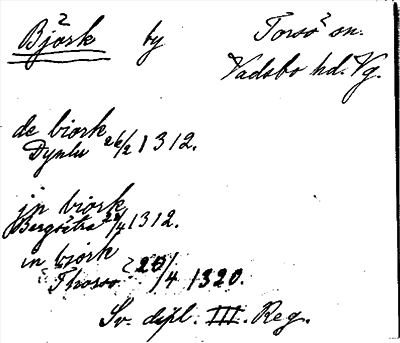 Björk by Torsö sn.
Vadsbo hd. Vg.
de biork
Dynlu 26/2 1312.
in biork
Bergsätra 22/4 1312.
in biork
Thorso 20/4 1320.
Sv. dipl. III. Reg.